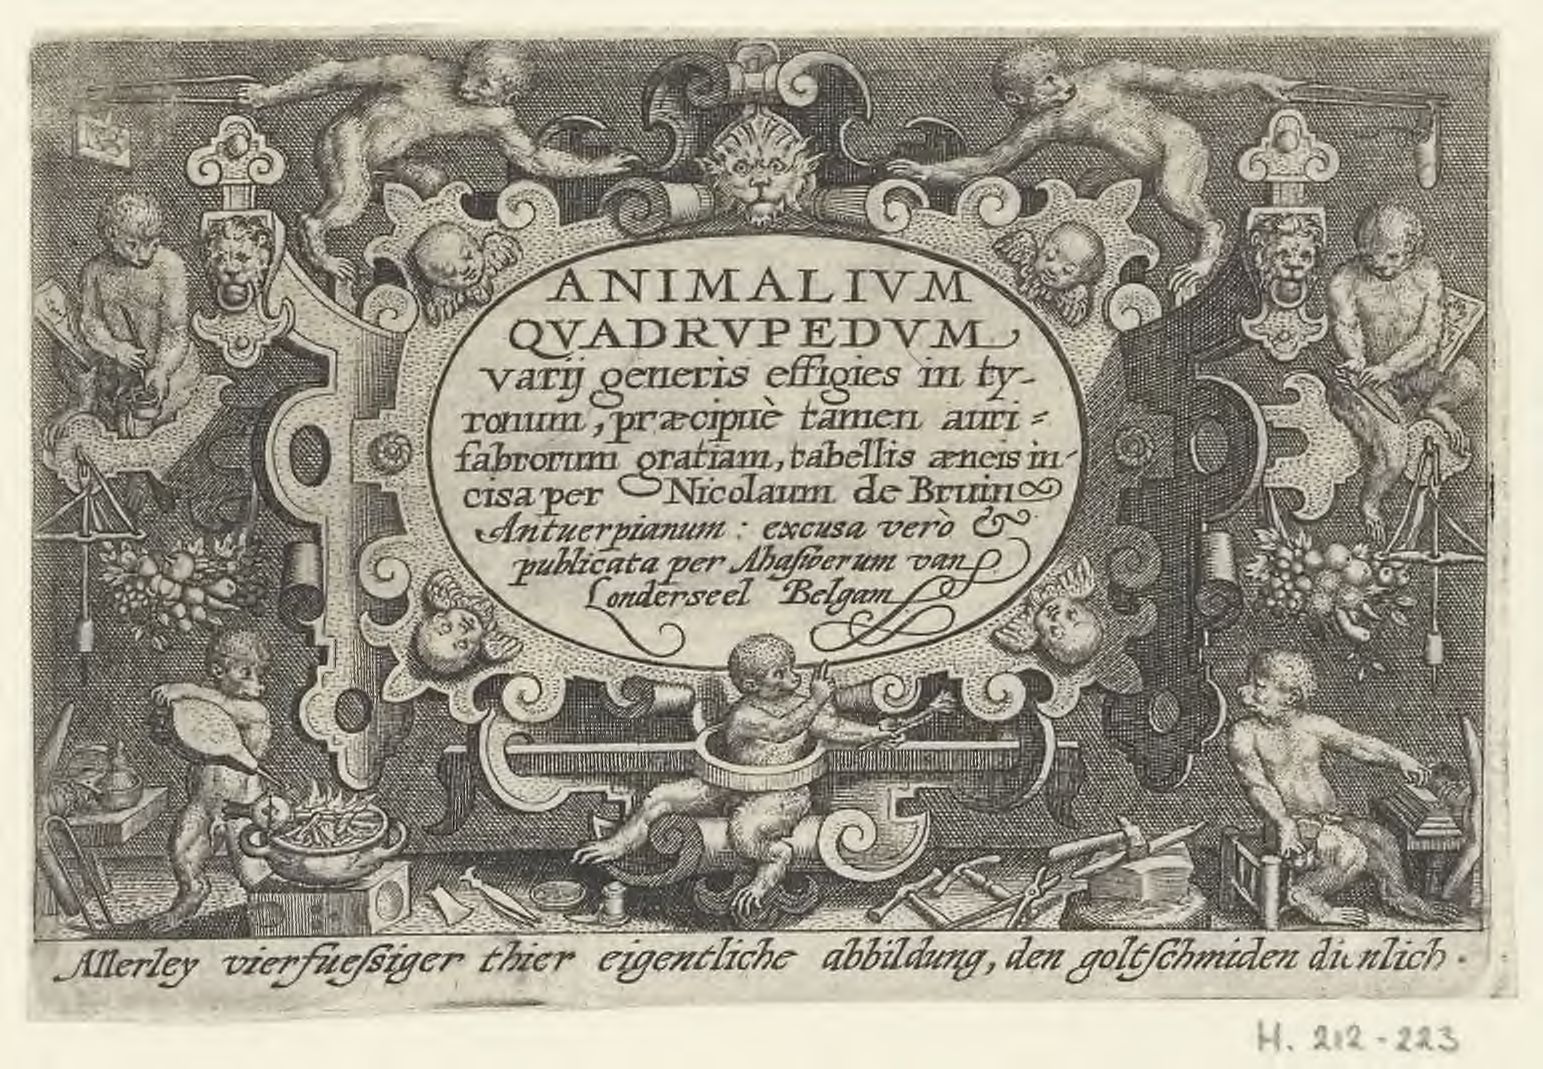 ANIMALIVM
QVADRVPEDVM
varij generis effigies in ty-
ronum, præcipuè tamen auri=
fabrorum gratiam, tabellis æneis in-
cisa per Nicolaum de Bruin
Antuerpianum : excusa verò &
publicata per Ahaſverum van
Londerseel Belgam
Allerley vierfueſsiger thier eigentliche abbildung, den goltſchmiden dienlich.
H. 212-223